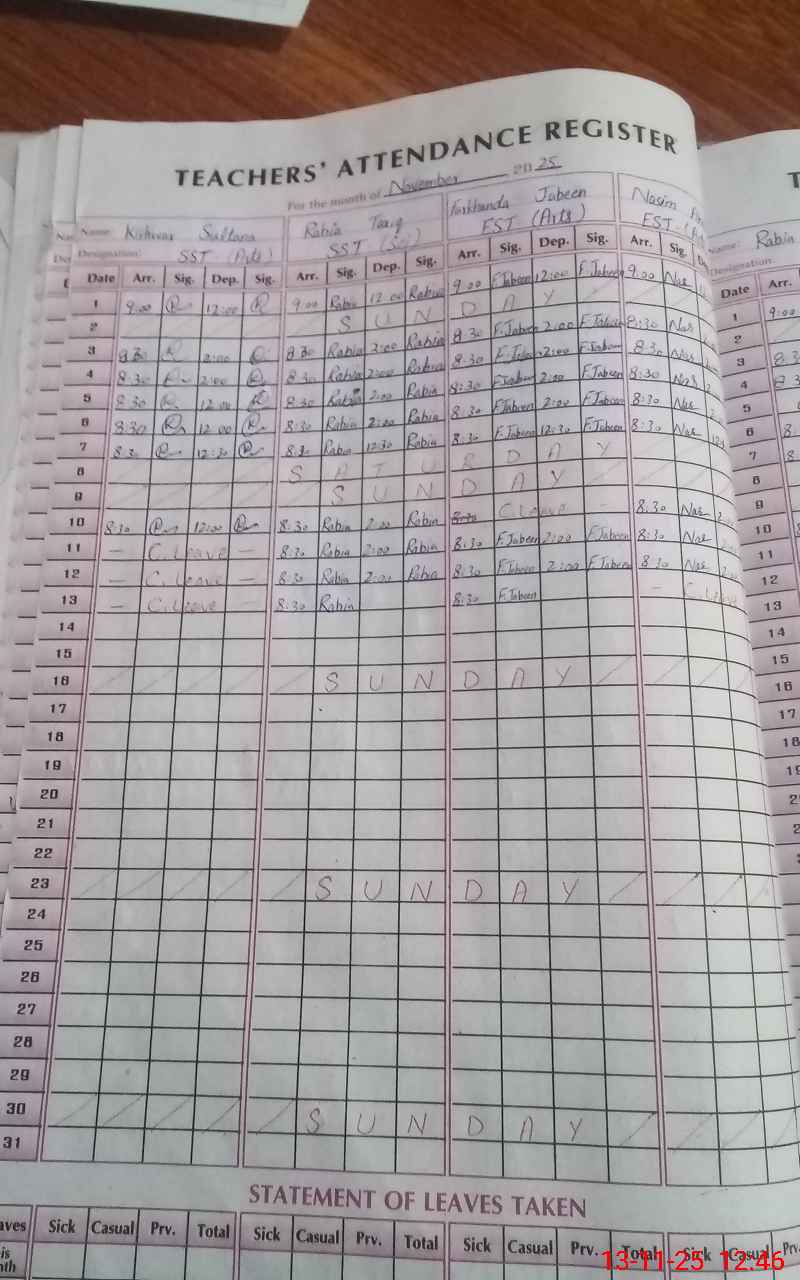 TEACHERS' ATTENDANCE REGISTER
For the month of November 2025
Name: Kishwar Sultana Rabia Tariq Farkhanda Jabeen Nasim
Designation: SST (Arts) SST (Sci) EST (Arts) EST
Name: Rabia
Designation
Date Arr. Sig. Dep. Sig. Arr. Sig. Dep. Sig. Arr. Sig. Dep. Sig. Arr. Sig. Date Arr.
1 9:00 12:00 9:00 Rabia 12:00 Rabia 9:00 F.Jabeen 12:00 F.Jabeen 9:00 Nas 1 9:00
2 S U N D A Y 2
3 8:30 2:00 8:30 Rabia 2:00 Rabia 8:30 F.Jabeen 2:00 F.Jabeen 8:30 Nas 3
4 8:30 2:00 8:30 Rabia 2:00 Rabia 8:30 F.Jabeen 2:00 F.Jabeen 8:30 Nas 4
5 8:30 12:00 8:30 Rabia 2:00 Rabia 8:30 F.Jabeen 2:00 F.Jabeen 8:30 Nas 5
6 8:30 12:00 8:30 Rabia 2:00 Rabia 8:30 F.Jabeen 2:00 F.Jabeen 8:30 Nas 6
7 8:30 12:30 8:30 Rabia 12:30 Rabia 8:30 F.Jabeen 12:30 F.Jabeen 8:30 Nas 7
8 S A T U R D A Y 8
9 S U N D A Y 9
10 8:30 12:00 8:30 Rabia 2:00 Rabia C.leave - 8:30 Nas 10
11 - C.leave - 8:30 Rabia 2:00 Rabia 8:30 F.Jabeen 2:00 F.Jabeen 8:30 Nas 11
12 - C.leave - 8:30 Rabia 2:00 Rabia 8:30 F.Jabeen 2:00 F.Jabeen 8:30 Nas 12
13 - C.leave 8:30 Rabia 8:30 F.Jabeen - C.leave 13
14 14
15 15
16 S U N D A Y 16
17 17
18 18
19
20
21
22
23 S U N D A Y
24
25
26
27
28
29
30 S U N D A Y
31
STATEMENT OF LEAVES TAKEN
Sick Casual Prv. Total Sick Casual Prv. Total Sick Casual Prv. Total Sick Casual Prv.
13-11-25 12:46